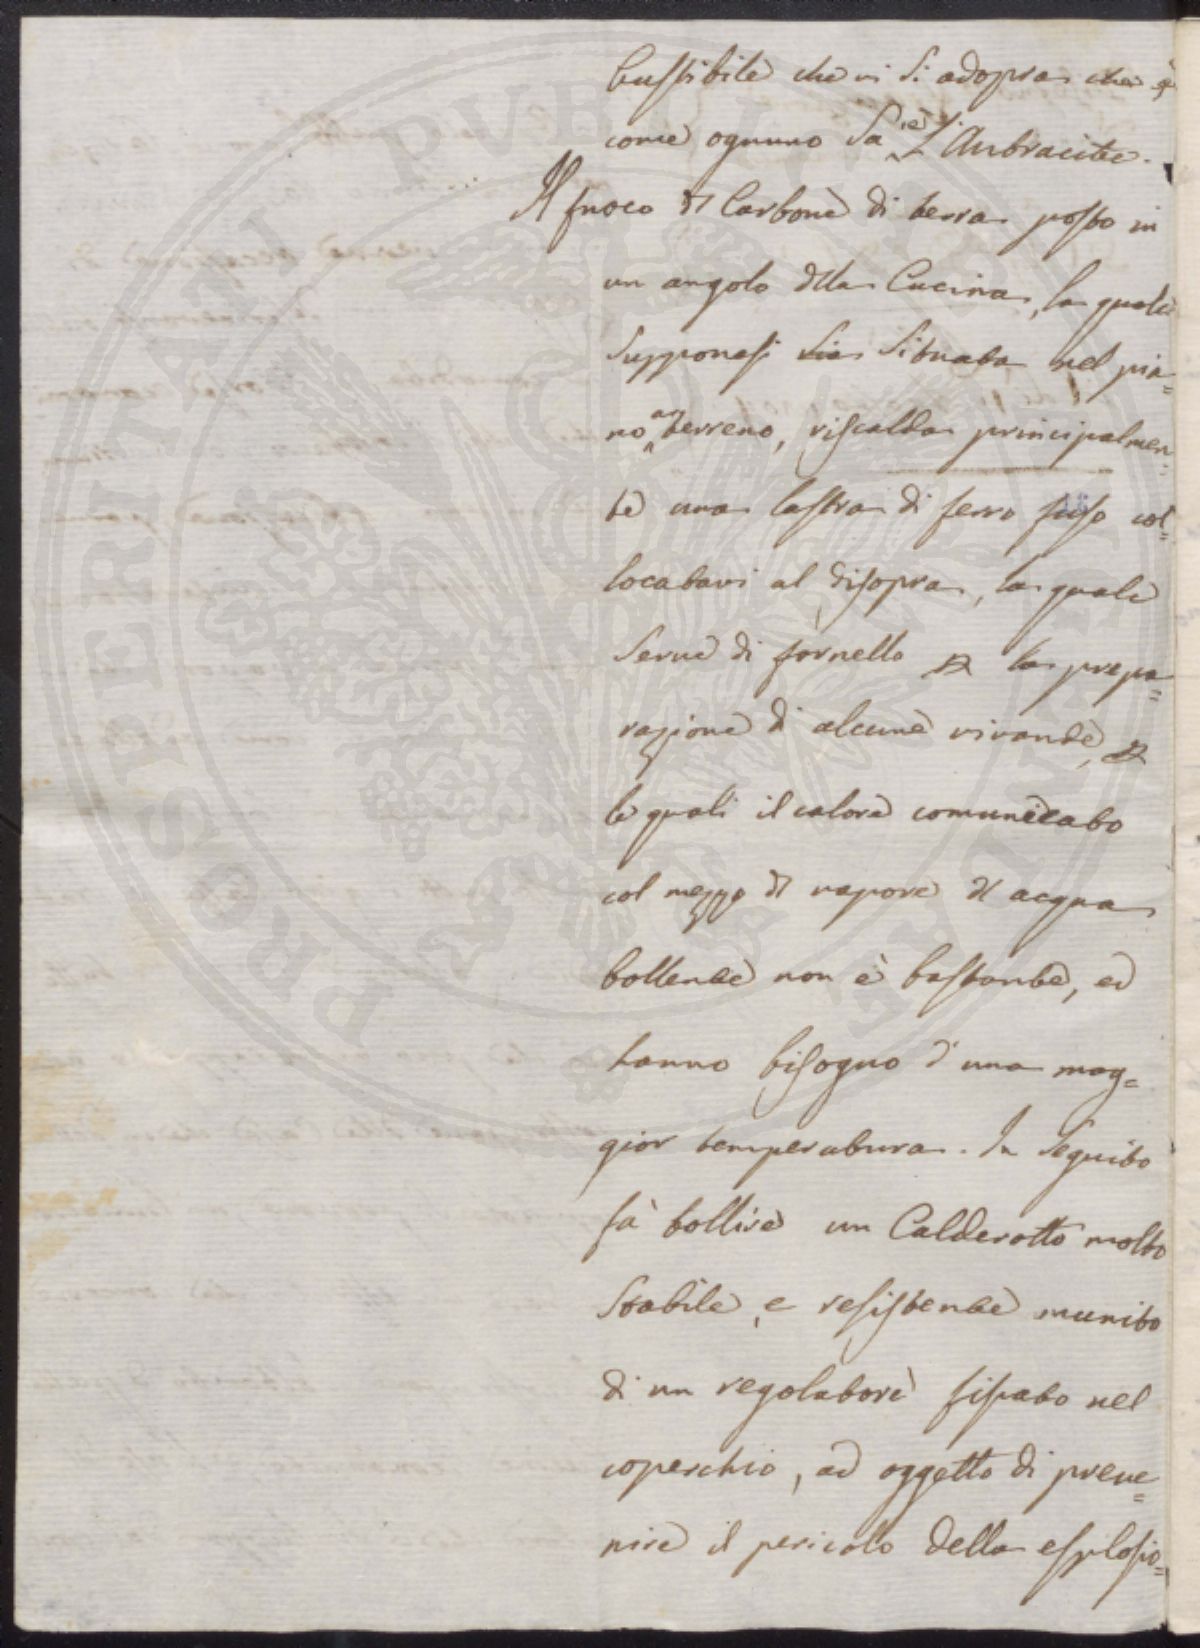 bustibile che vi si adopra che è
come ognuno sa, è l'Antracite.
Il fuoco di Carbone di terra posto in
un angolo della Cucina, la quale
supponesi sia situata nel pia=
no a terreno, riscalda principalmen=
te una lastra di ferro fuso col=
locatavi al disopra, la quale
serve di fornello per la prepa=
razione di alcune vivande, per
le quali il calore comunicato
col mezzo di vapore di acqua
bollente non è bastante, ed
hanno bisogno d'una mag=
gior temperatura. In seguito
fà bollire un Calderotto molto
stabile, e resistente munito
di un regolatore fissato nel
coperchio, ad oggetto di preve=
nire il pericolo della esplosio=
PROSPERITATI PVBLICAE AVGENDAE